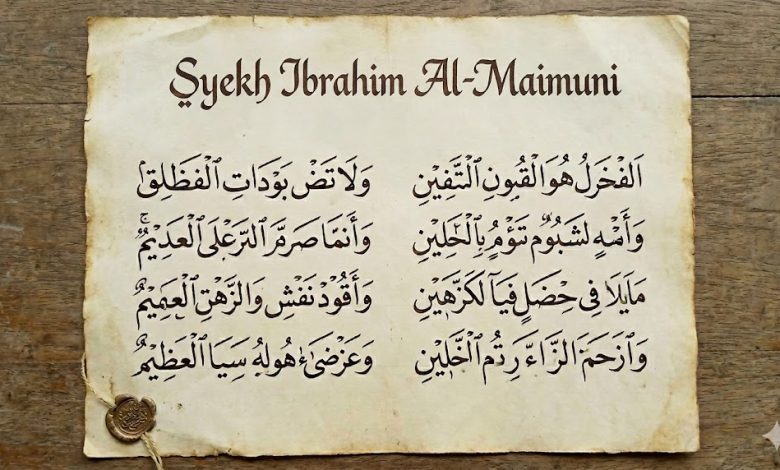 Syekh Ibrahim Al-Maimuni
اَلفَخْرَلُ هُوَالْقُبِونِ ٱلتَّفِينِ وَلَا تَضْ بَوْدَاتِ ٱلْفَظْلِقْ
وَأَمْهٍ لشَبُوُمٌ تَوْمُ بِٱلْخَلِيْنِ وَأَنمَّا صَرمَّرَ ٱلترَعْلَى ٱلْعَدِيْمُ
مَايَلَا فِى حِضَلٍ فَيَآ لَكَزَّهَيْنِ وَأَقُودْ نَفْشِ وَالزَّهْتِ ٱلْعِمِيْمُ
وَٱزْحَمَ الزَّاءَ رِتُم ٱلْخَّلِيْنِ وَعَزْضَىٰ هُولِهُ سِيَا ٱلْعَظِيْمُ